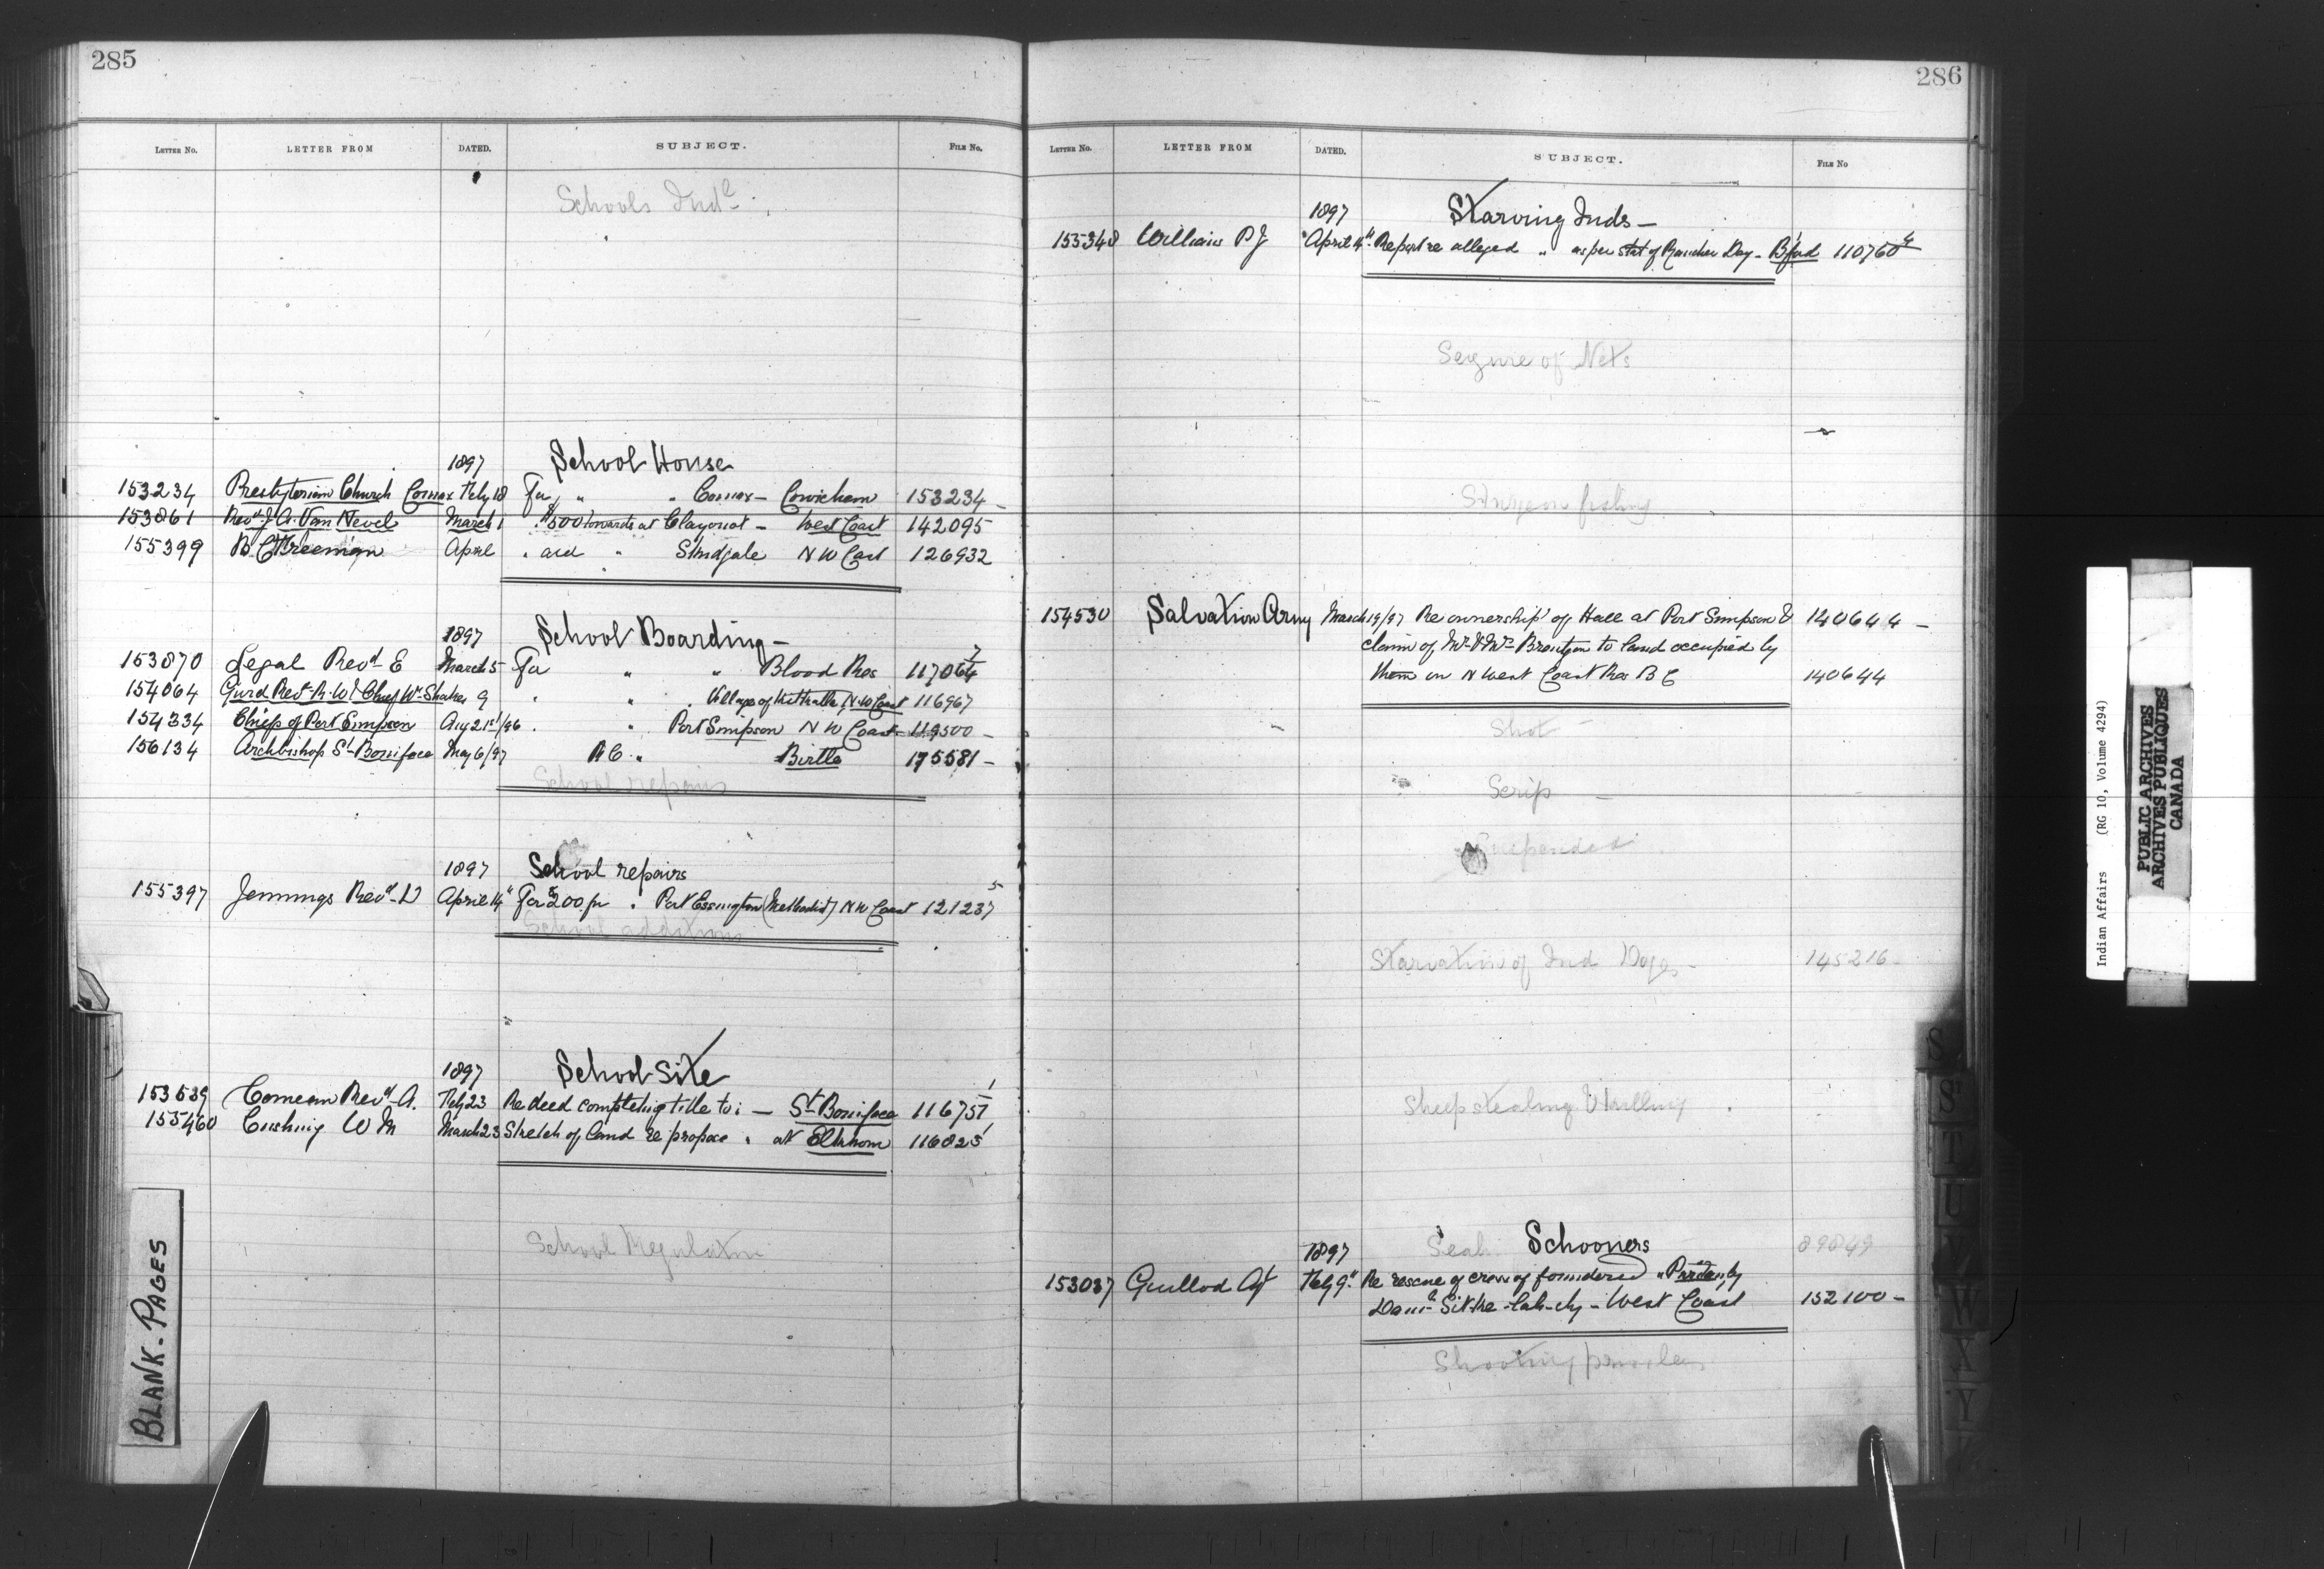 285
LETTER NO. LETTER FROM DATED. SUBJECT. FILE NO.
Schools Indl
1897 School House
153234 Presbyterian Church Comox Feby 18 For " " Comox - Cowichan 153234 -
153861 Revd J. A. Van Nevel March 1 " $500 towards at Clayoquot - West Coast 142095
155399 B C Freeman April " aid " Skidgate N W Coast 126932
1897 School Boarding -
153870 Legal Revd E March 5 For " " Blood Res 117064
154064 Gurd Revd R. W & Chief Wm Shakes 9 " " " Village of Kitkatla, N.W Coast 116967
154334 Chiefs of Port Simpson Aug 21st/96 " " Port Simpson N W Coast 119500 -
156134 Archbishop St Boniface May 6/97 R C " Birtle 175581 -
School repairs
1897 School repairs
155397 Jennings Revd D April 14" For $200 for " Port Essington (Methodist) N W Coast 121237 5
School additions
1897 School Site
153539 Comeau Revd A. Feby 23 Re deed completing title to " - St Boniface 116751 1
155460 Cushing W M March 23 Sketch of land re propose " at Elkhorn 116825 1
School Regulation
BLANK - PAGES
286
LETTER NO. LETTER FROM DATED. SUBJECT. FILE NO
1897 Starving Inds -
155348 Williams P J April 14" Report re alleged " as per stat of Rancher Day - B'ford 110760 4
Seizure of Nets
Sturgeon fishing
154530 Salvation Army March 19/97 Re ownership of Hall at Port Simpson & 140644 -
claim of Mr & Mrs to land occupied by
them on N West Coast Res B C 140644
Shot
Scrip -
Suspended
Starvation of Ind Dogs - 145216 -
Sheep stealing & killing
1897 Seal Schooners 89849
153037 Guillod Agt Feby 9" Re rescue of crew of foundered " by
West Coast 152100 -
Shooting
S
S
T
U
W
X
Y
Indian Affairs (RG 10, Volume 4294)
PUBLIC ARCHIVES
ARCHIVES PUBLIQUES
CANADA